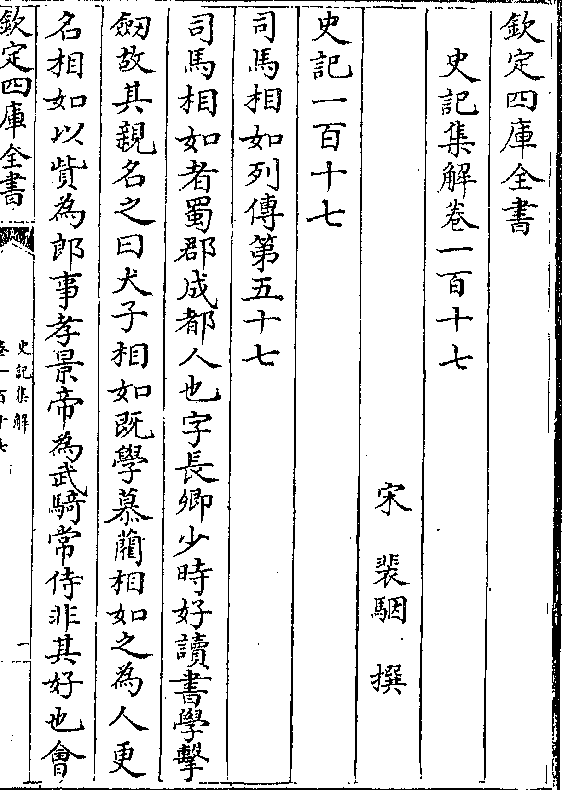 欽定四庫全書
史記集解卷一百十七
宋 裴駰 撰
史記一百十七
司馬相如列傳第五十七
司馬相如者蜀郡成都人也字長卿少時好讀書學擊
劒故其親名之曰犬子相如既學慕藺相如之為人更
名相如以貲為郎事孝景帝為武騎常侍非其好也會
欽定四庫全書
史記集解
卷一百十七
一